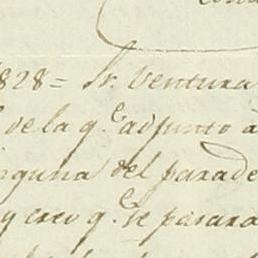 1828 = Sr. Ventura
de la q.e adjunto a
inguna del parade
y creo q.e se pasara